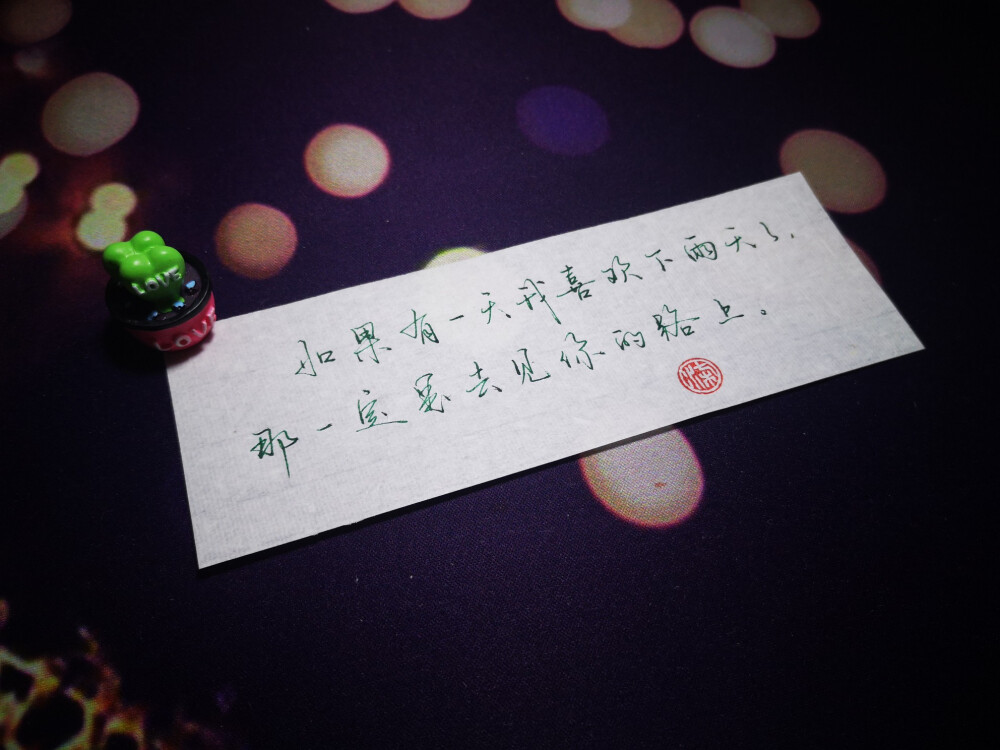 如果有一天我喜欢下雨天了，
那一定是去见你的路上。
LOVE
LOVE